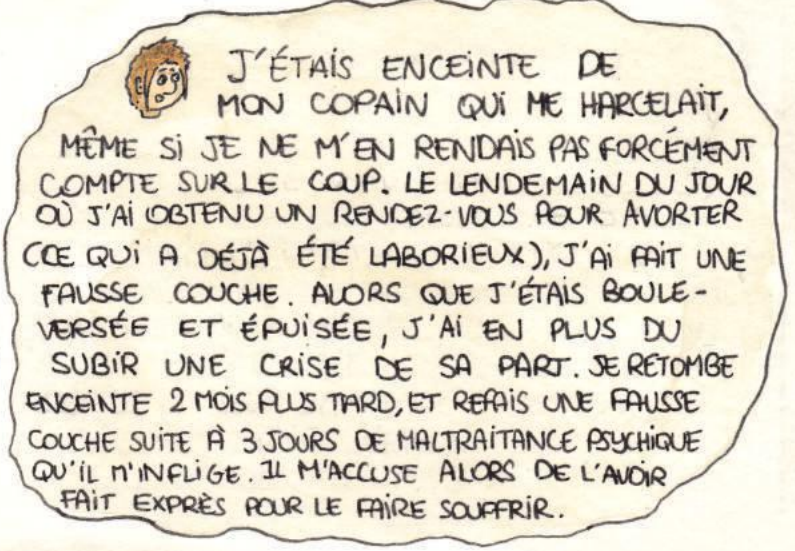 J'ÉTAIS ENCEINTE DE
MON COPAIN QUI ME HARCELAIT,
MÊME SI JE NE M'EN RENDAIS PAS FORCÉMENT
COMPTE SUR LE COUP. LE LENDEMAIN DU JOUR
OÙ J'AI OBTENU UN RENDEZ-VOUS POUR AVORTER
(CE QUI A DÉJÀ ÉTÉ LABORIEUX), J'AI FAIT UNE
FAUSSE COUCHE. ALORS QUE J'ÉTAIS BOULE-
VERSÉE ET ÉPUISÉE, J'AI EN PLUS DU
SUBIR UNE CRISE DE SA PART. JE RETOMBE
ENCEINTE 2 MOIS PLUS TARD, ET REFAIS UNE FAUSSE
COUCHE SUITE À 3 JOURS DE MALTRAITANCE PSYCHIQUE
QU'IL M'INFLIGE. IL M'ACCUSE ALORS DE L'AVOIR
FAIT EXPRÈS POUR LE FAIRE SOUFFRIR.